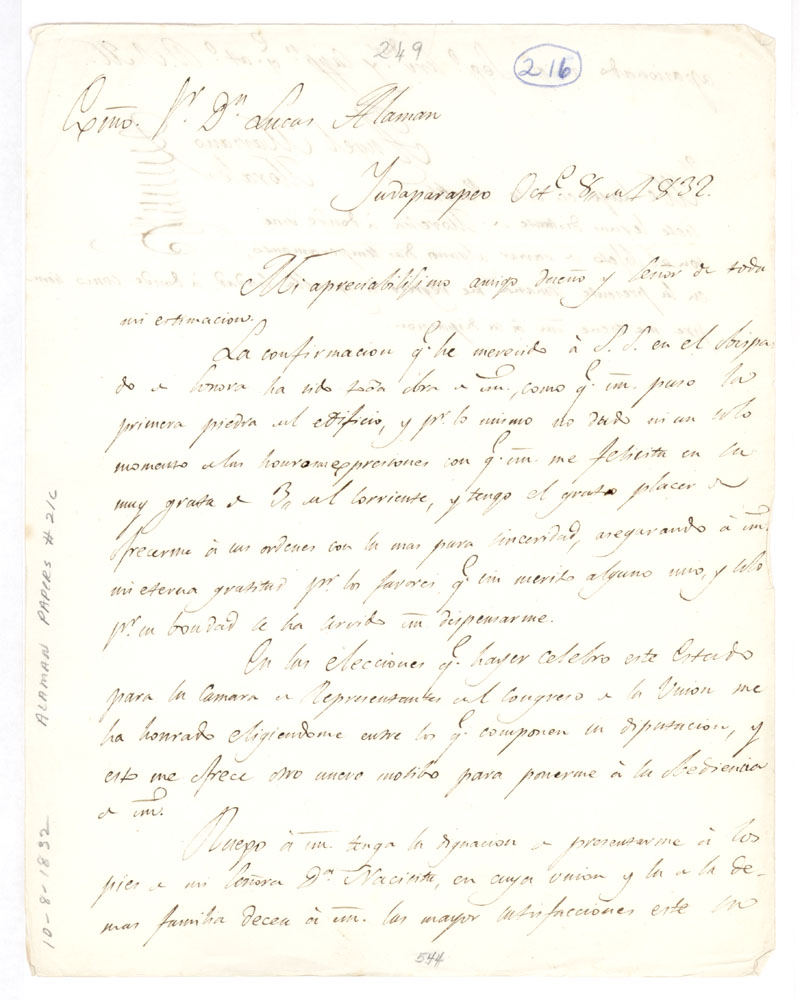 249
216
Exmo. Sr. Dn. Lucas Alaman
Yndaparapeo Octe. 8,, de 1832.
Mi apreciabilisimo amigo dueño y Señor de toda
mi estimacion.
La confirmacion q. he merecido à S. S. en el Obispa
do de Sonora ha sido toda obra de vm., como q. vm. puso la
primera piedra del edificio, y pr. lo mismo no dudo ni un solo
momento de las honrosas expresiones con q. vm. me felicita en su
muy grata de 3,, del corriente, y tengo el grato placer de
ofrecerme à sus ordenes con la mas pura sinceridad, asegurando à vm.
mi eterna gratitud pr. los favores q. sin merito alguno mio, y solo
pr. su bondad se ha servido vm. dispensarme.
En las elecciones q. hayer celebro este Estado
para la Camara de Representantes del Congreso de la Union me
ha honrado eligiendome entre los q. componen su diputacion, y
esto me ofrece otro nuevo motibo para ponerme à la obediencia
de vm.
Ruego à vm. tenga la dignacion de presentarme à los
pies de mi Señora Da. Narcisita, en cuya union y la de la de-
mas familia decea à vm. las mayor satisfacciones este su
544
ALAMAN PAPERS # 216
10-8-1832